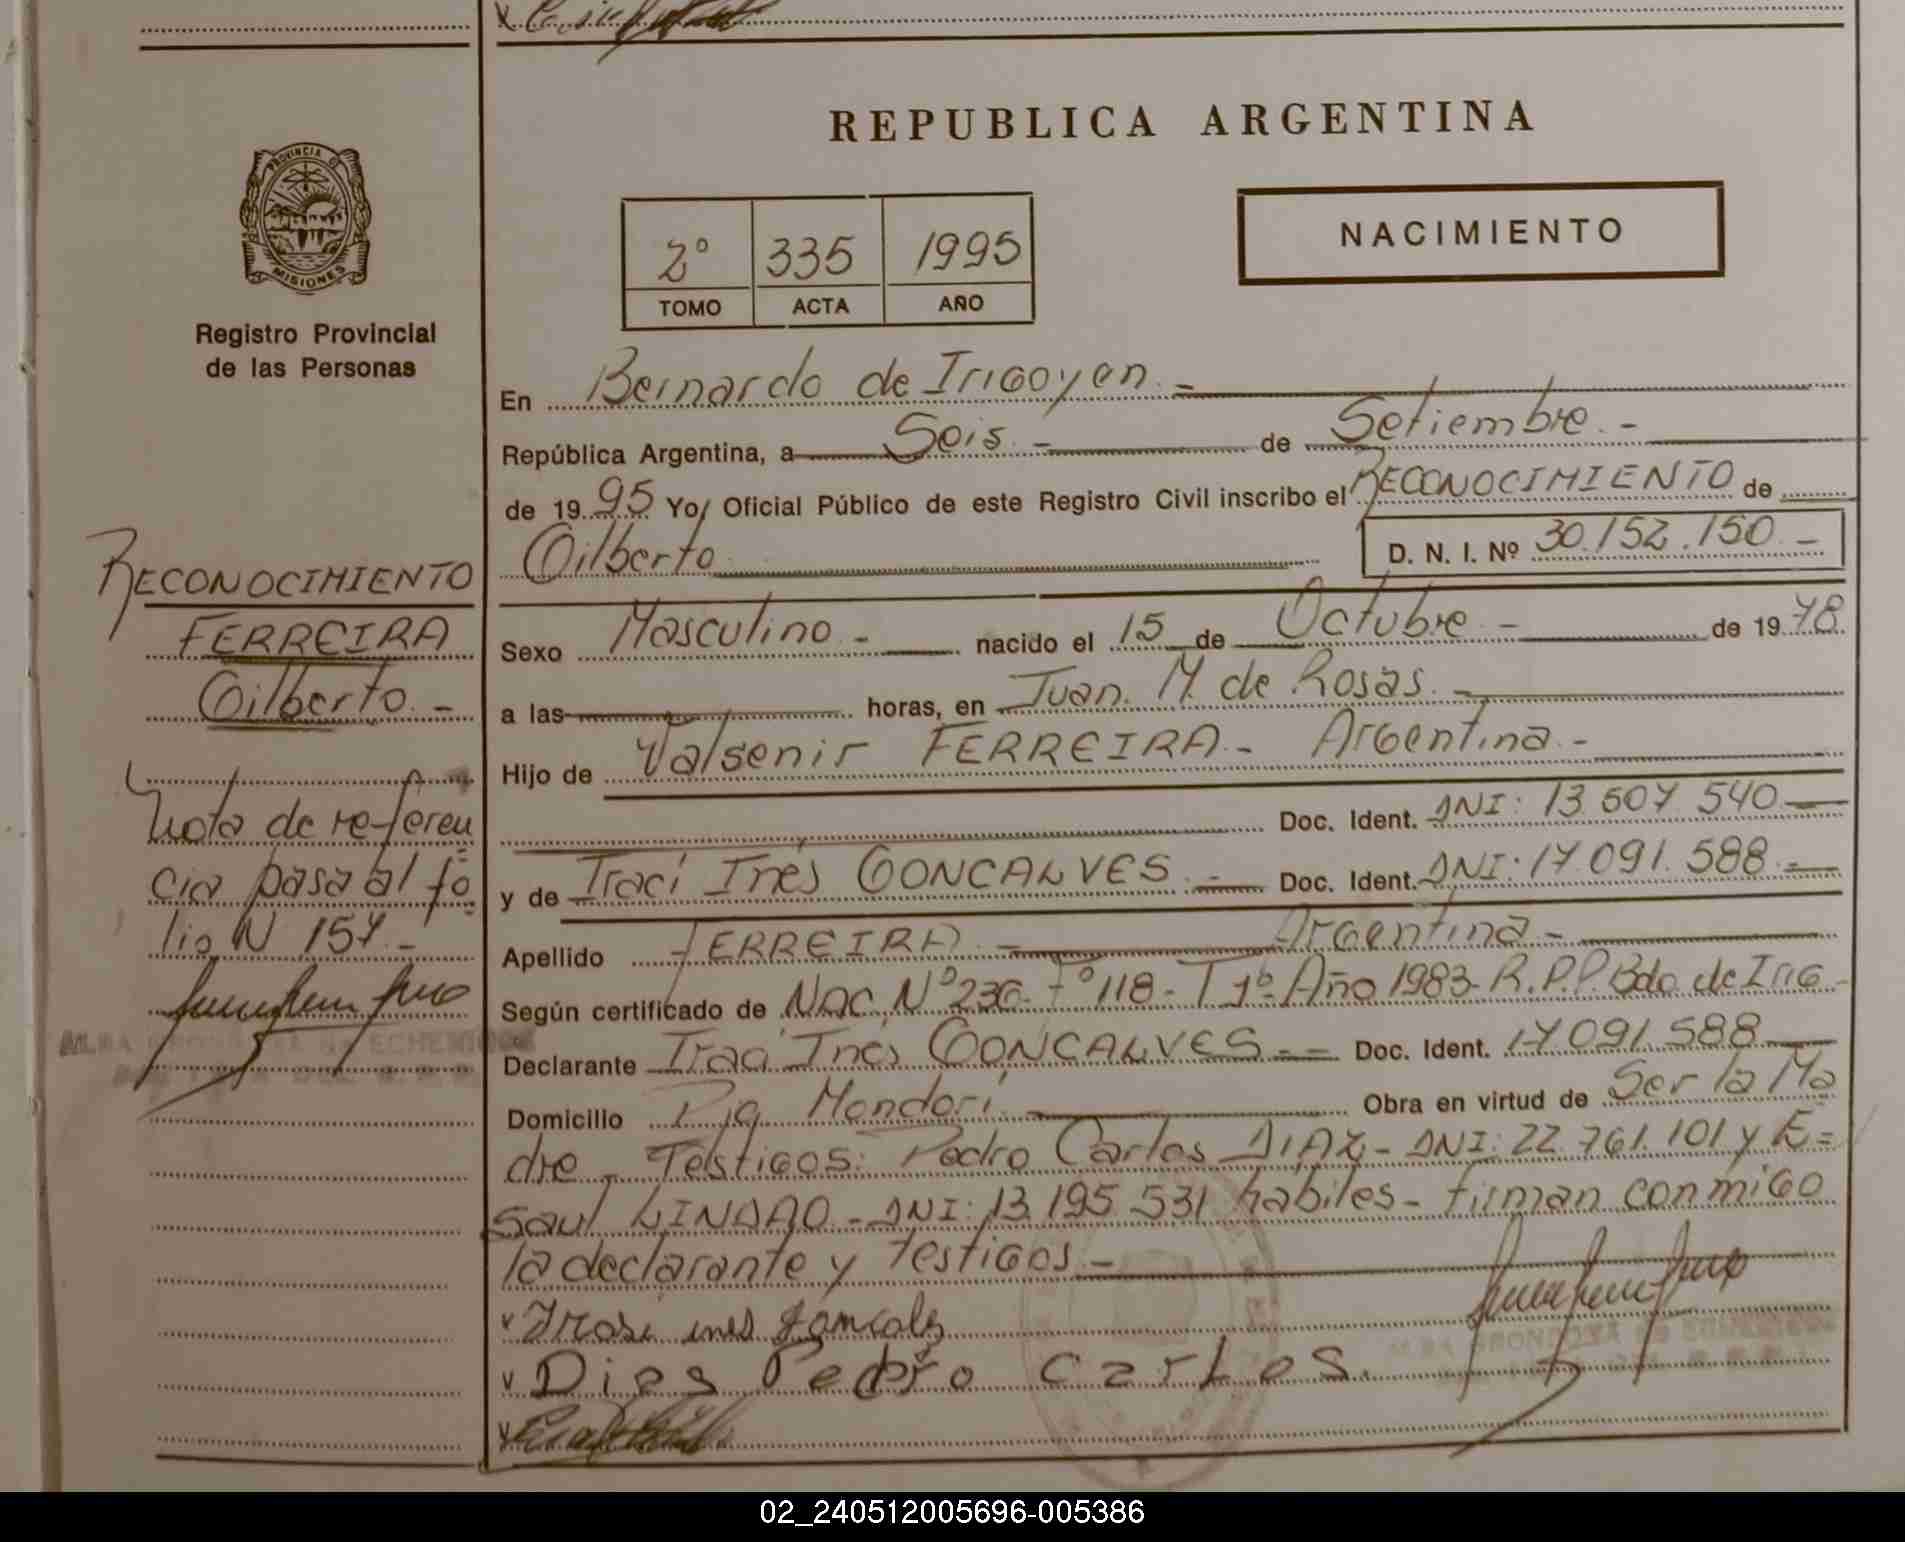 PROVINCIA D
MISIONES
Registro Provincial
de las Personas
RECONOCIMIENTO
FERREIRA
Gilberto. -
Nota de referen
cia pasa al fo
lio N 157. -
REPUBLICA ARGENTINA
2º 335 1995
TOMO ACTA AÑO
NACIMIENTO
En Bernardo de Irigoyen. -
República Argentina, a Seis. - de Setiembre. -
de 1995 Yo, Oficial Público de este Registro Civil inscribo el RECONOCIMIENTO de
Gilberto D. N. I. Nº 30.152.150. -
Sexo Masculino. - nacido el 15 de Octubre - de 1978
a las horas, en Juan. M. de Rosas. -
Hijo de Valsenir FERREIRA. - Argentina. -
Doc. Ident. DNI: 13.607.540
y de Iraci Inés GONCALVES. - Doc. Ident. DNI: 17.091.588. -
Apellido FERREIRA. - Argentina. -
Según certificado de NAC. Nº 236- Fº 118- T 1º- Año 1983- R.P.P. Bdo de Irig -
Declarante Iraci Inés GONCALVES. - - Doc. Ident. 17.091.588
Domicilio Pja Mondorí Obra en virtud de Ser la Ma
dre - Testigos: Pedro Carlos DIAZ - DNI: 22.761.101 y E=
saul LINDAO - DNI: 13.195.531 hábiles - firman conmigo
la declarante y testigos. -
v Irasi ines
v Dias Pedro Carlos.
02_240512005696-005386